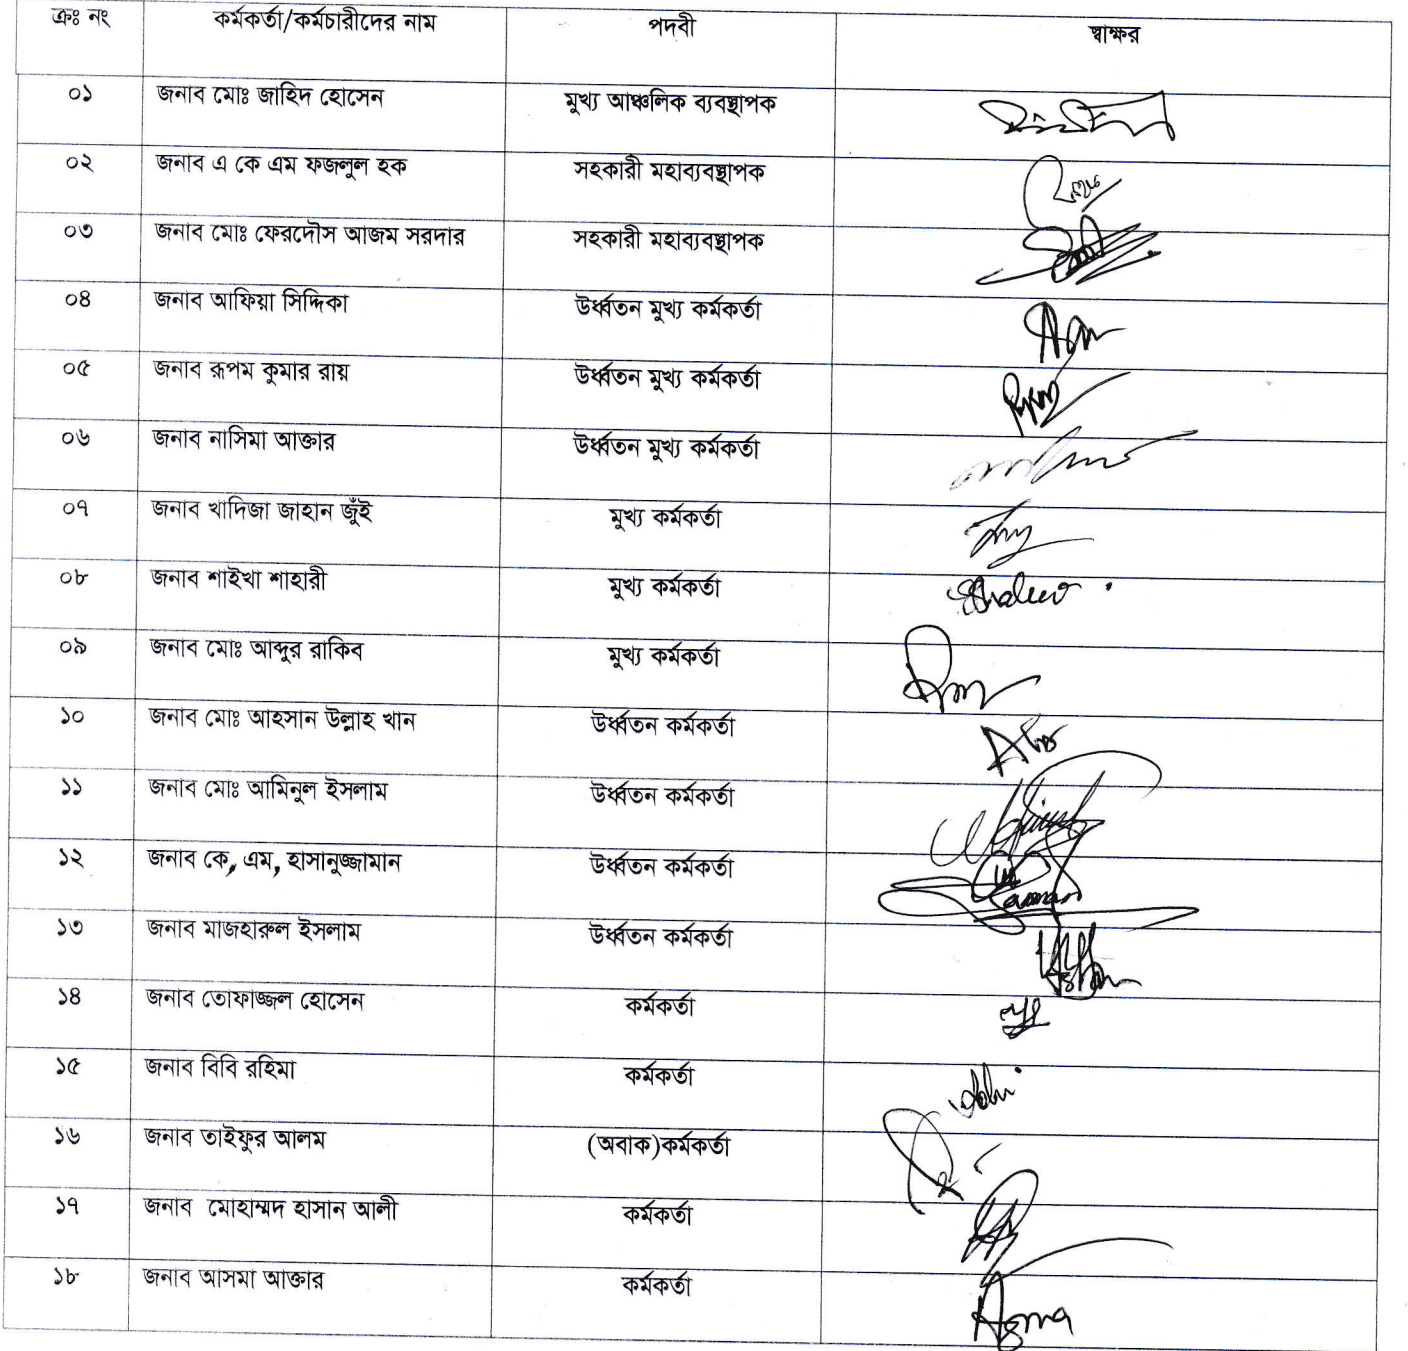 ক্রঃ নং কর্মকর্তা/কর্মচারীদের নাম পদবী স্বাক্ষর
০১ জনাব মোঃ জাহিদ হোসেন মুখ্য আঞ্চলিক ব্যবস্থাপক
০২ জনাব এ কে এম ফজলুল হক সহকারী মহাব্যবস্থাপক
০৩ জনাব মোঃ ফেরদৌস আজম সরদার সহকারী মহাব্যবস্থাপক
০৪ জনাব আফিয়া সিদ্দিকা উর্ধ্বতন মুখ্য কর্মকর্তা
০৫ জনাব রূপম কুমার রায় উর্ধ্বতন মুখ্য কর্মকর্তা
০৬ জনাব নাসিমা আক্তার উর্ধ্বতন মুখ্য কর্মকর্তা
০৭ জনাব খাদিজা জাহান জুঁই মুখ্য কর্মকর্তা
০৮ জনাব শাইখা শাহারী মুখ্য কর্মকর্তা
০৯ জনাব মোঃ আব্দুর রাকিব মুখ্য কর্মকর্তা
১০ জনাব মোঃ আহসান উল্লাহ খান উর্ধ্বতন কর্মকর্তা
১১ জনাব মোঃ আমিনুল ইসলাম উর্ধ্বতন কর্মকর্তা
১২ জনাব কে, এম, হাসানুজ্জামান উর্ধ্বতন কর্মকর্তা
১৩ জনাব মাজহারুল ইসলাম উর্ধ্বতন কর্মকর্তা
১৪ জনাব তোফাজ্জল হোসেন কর্মকর্তা
১৫ জনাব বিবি রহিমা কর্মকর্তা
১৬ জনাব তাইফুর আলম (অবাক)কর্মকর্তা
১৭ জনাব মোহাম্মদ হাসান আলী কর্মকর্তা
১৮ জনাব আসমা আক্তার কর্মকর্তা Asma